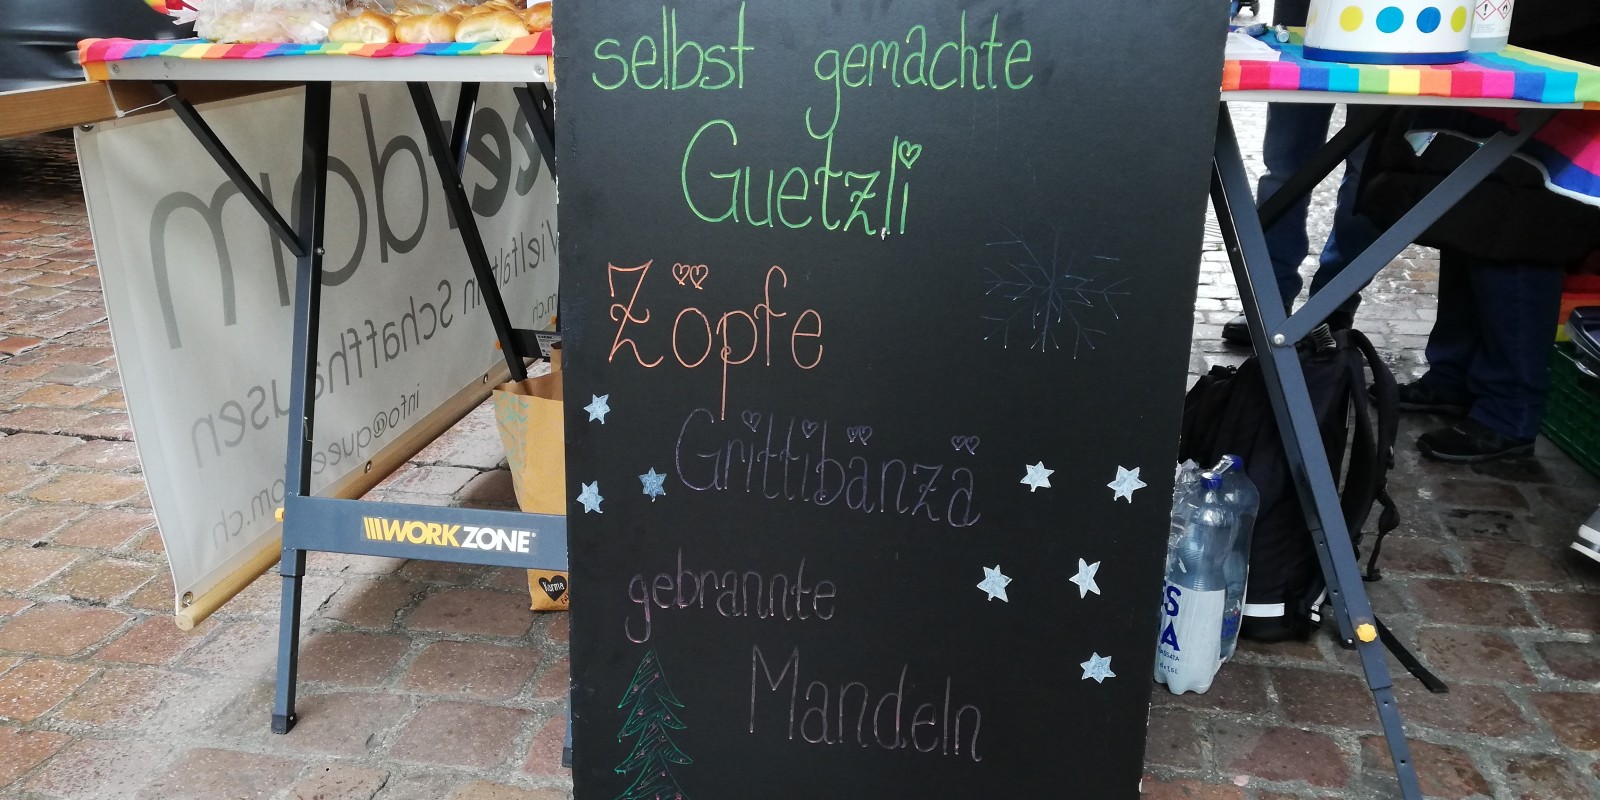 selbst gemachte
Guetzli
Zöpfe
Grittibänzä
gebrannte
Mandeln
dom
Vielfalt in Schaffhausen
info@quee
om.ch
WORKZONE
Karma